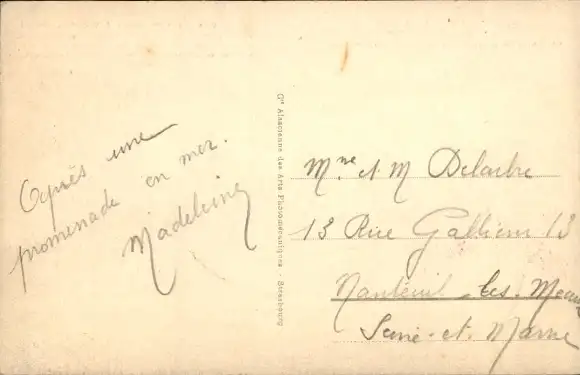 Après une
promenade en mer.
Madeleine
Cie Alsacienne des Arts Photomécaniques - Strasbourg
Mme et M Delarbre
13 Rue Gallieni 13
Nanteuil-les-Meaux
Seine-et-Marne